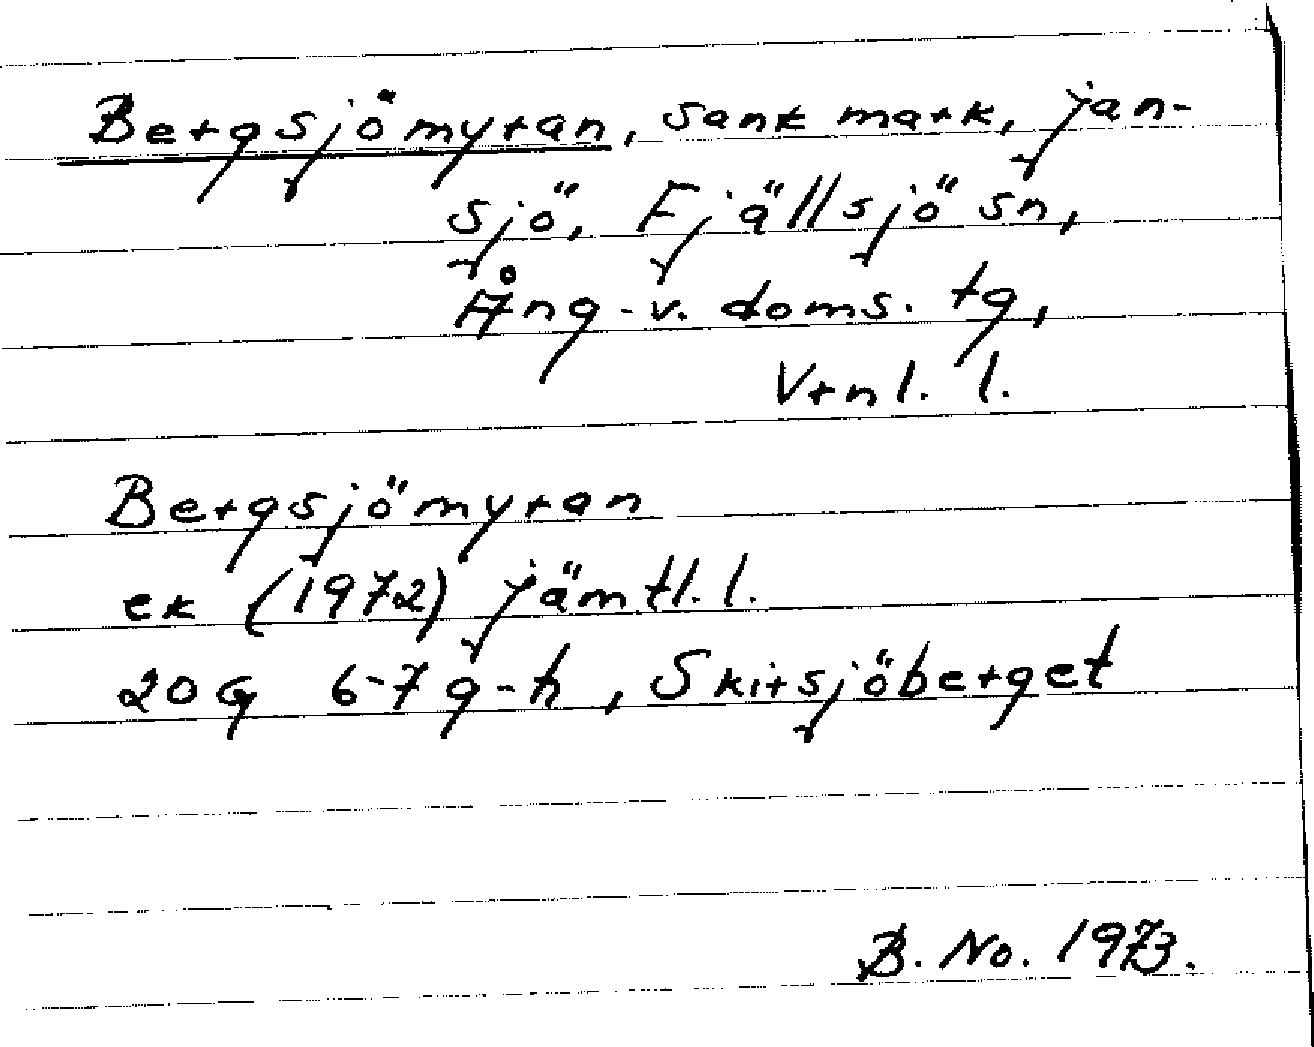 Bergsjömyran, sank mark, Jan-
sjö, Fjällsjö sn,
Ång-v. doms. tg,
Vrnl. l.
Bergsjömyran
ek (1972) Jämtl. l.
20G 6-7 g-h, Skirsjöberget
B. No. 1973.